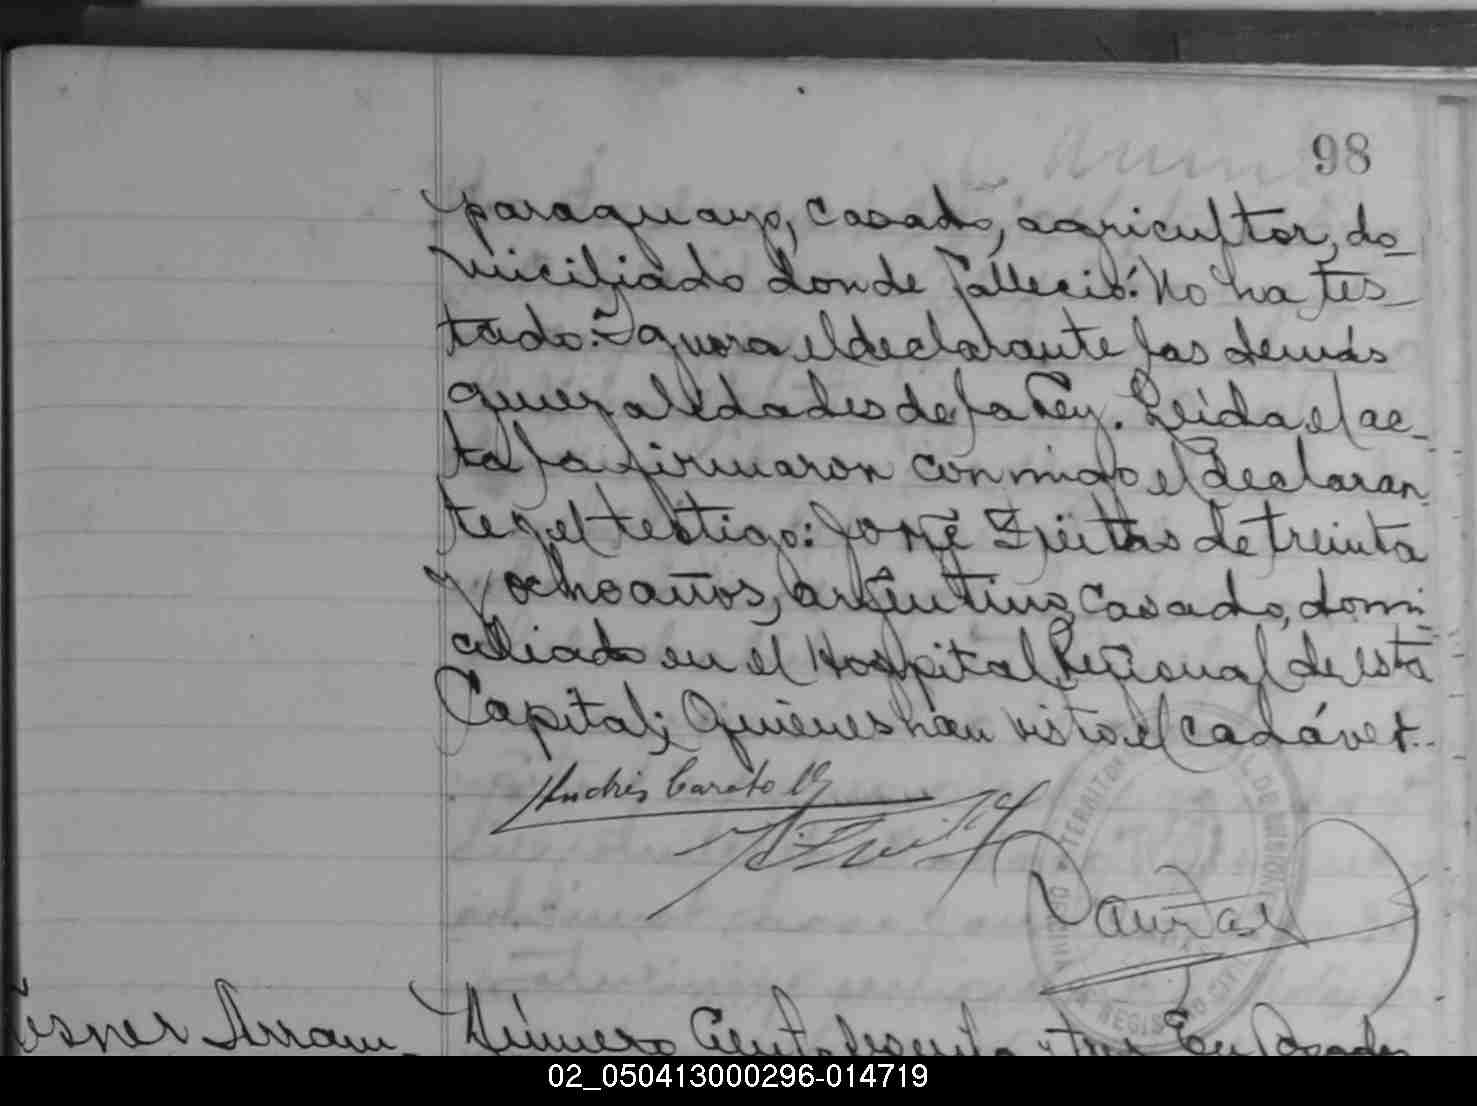 98
paraguayo, casado, agricultor, do_
miciliado donde falleció: No ha tes_
tado: Ignora el declarante las demás
generalidades de la Ley. Leida el ac_
ta la firmaron conmigo el declaran
te y el testigo: José Freittas de treinta
y ocho años, argentino, casado, domi
ciliado en el Hospital Regional de esta
Capital; Quienes han visto el cadáver.
Andrés
TERRITORIO DE MISIONES
Número Ciento sesenta y tres En Posadas
02_050413000296-014719